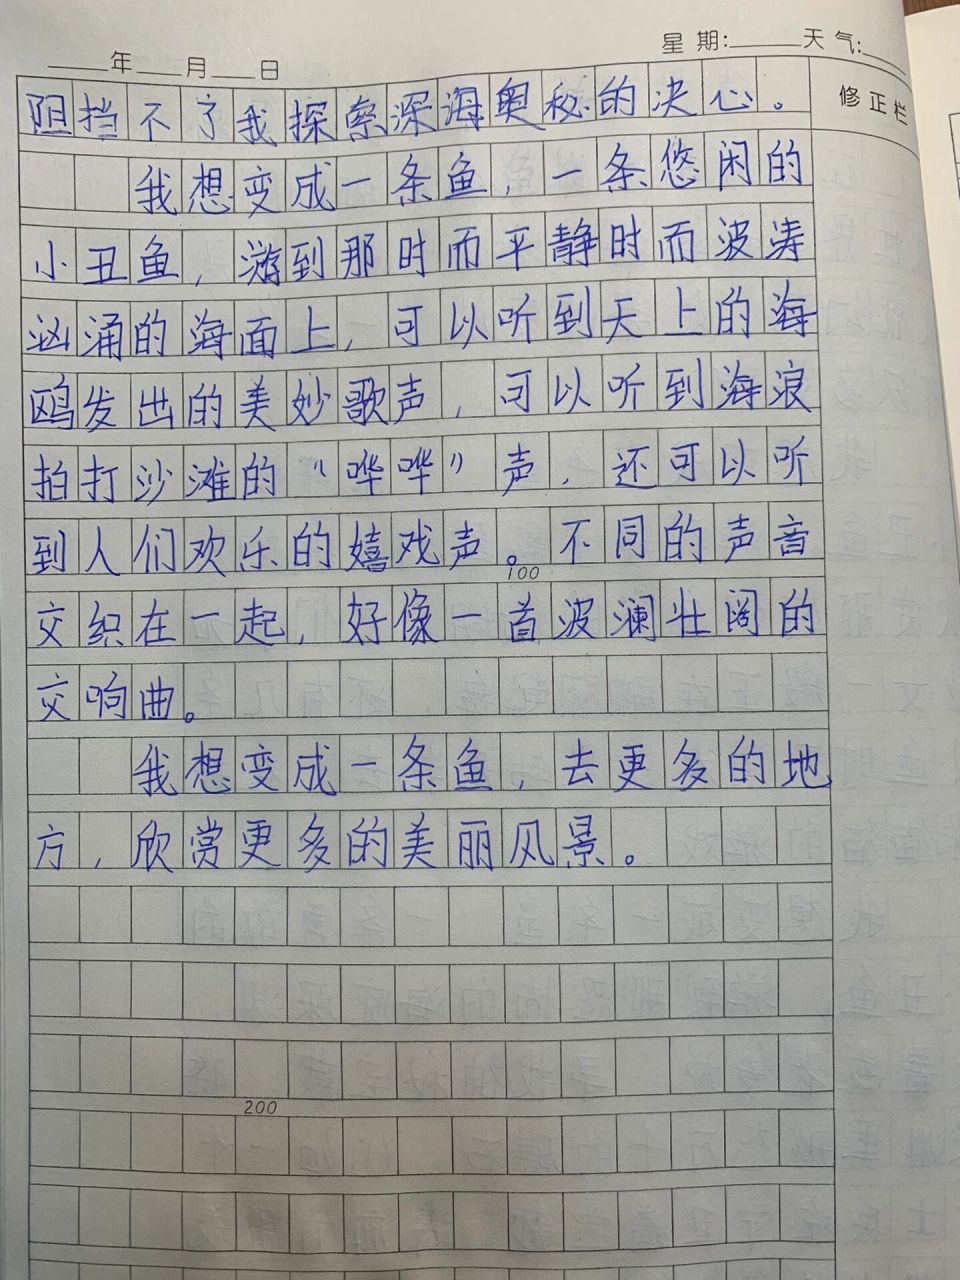 ____年____月____日 星期:____天气:____
修正栏
阻挡不了我探索深海奥秘的决心。
我想变成一条鱼，一条悠闲的
小丑鱼，游到那时而平静时而波涛
汹涌的海面上，可以听到天上的海
鸥发出的美妙歌声，可以听到海浪
拍打沙滩的“哗哗”声，还可以听
到人们欢乐的嬉戏声。不同的声音
100
交织在一起，好像一首波澜壮阔的
交响曲。
我想变成一条鱼，去更多的地
方，欣赏更多的美丽风景。
200